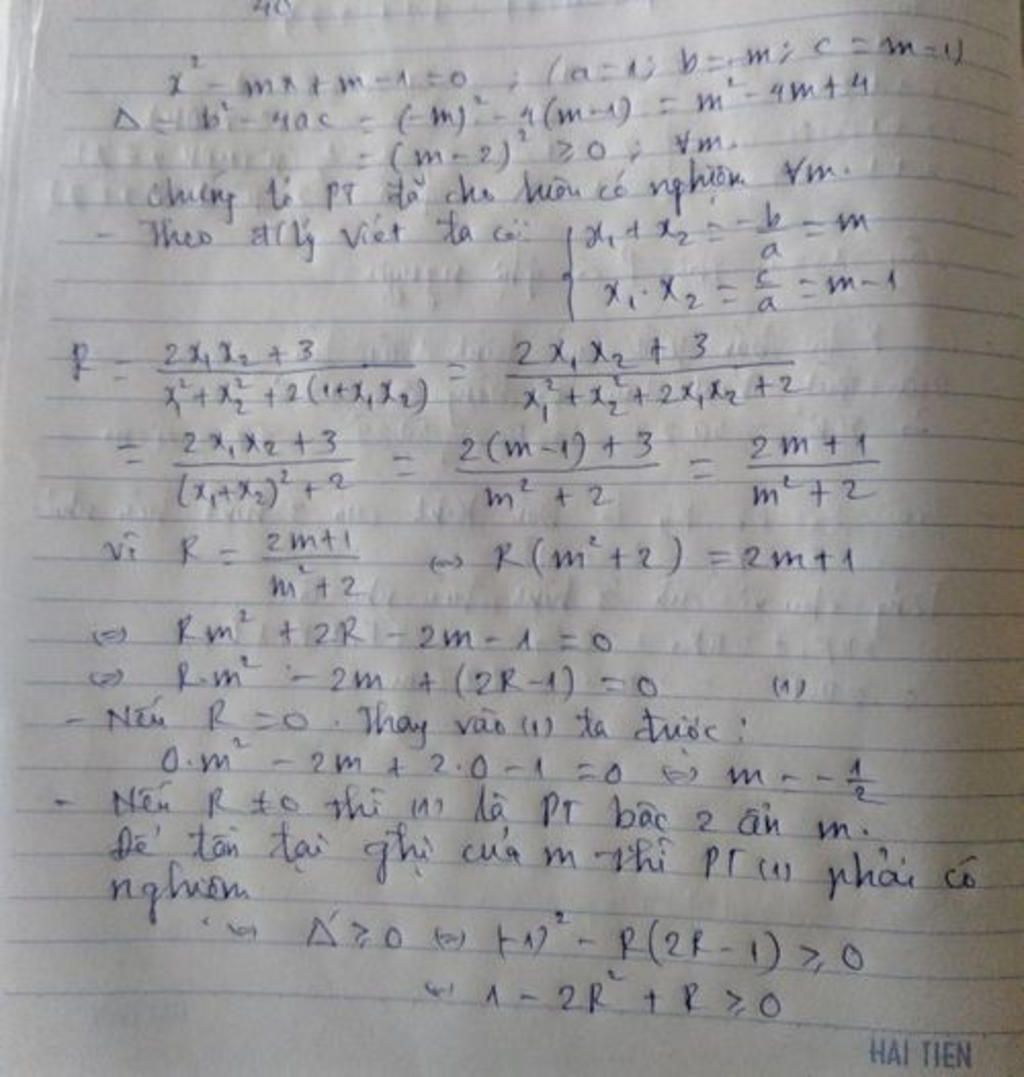 x² - mx + m - 1 = 0 ; (a = 1; b = -m; c = m - 1)
Δ = b² - 4ac = (-m)² - 4(m-1) = m² - 4m + 4
= (m - 2)² ≥ 0 ; ∀m.
Chứng tỏ PT đã cho luôn có nghiệm ∀m.
- Theo đ/lý Viét ta có: { x₁ + x₂ = -b/a = m
x₁ · x₂ = c/a = m - 1
R = (2x₁x₂ + 3)/(x₁² + x₂² + 2(1 + x₁x₂)) = (2x₁x₂ + 3)/(x₁² + x₂² + 2x₁x₂ + 2)
= (2x₁x₂ + 3)/((x₁+x₂)² + 2) = (2(m-1) + 3)/(m² + 2) = (2m + 1)/(m² + 2)
Vì R = (2m+1)/(m²+2) ⇔ R(m² + 2) = 2m + 1
⇔ Rm² + 2R - 2m - 1 = 0
⇔ R.m² - 2m + (2R - 1) = 0 (1)
- Nếu R = 0. Thay vào (1) ta được:
0.m² - 2m + 2.0 - 1 = 0 ⇔ m = -1/2
- Nếu R ≠ 0 thì (1) là PT bậc 2 ẩn m.
Để tồn tại ghị của m thì PT (1) phải có
nghiệm
⇔ Δ' ≥ 0 ⇔ (-1)² - R(2R - 1) ≥ 0
⇔ 1 - 2R² + R ≥ 0
HẢI TIẾN